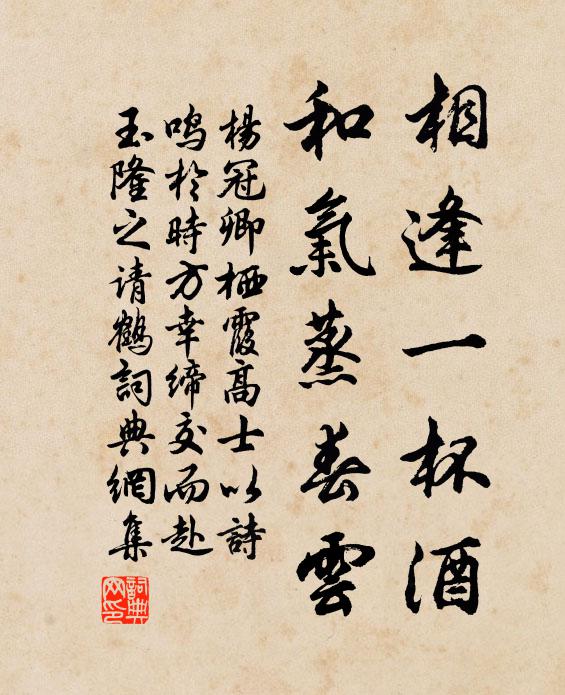 相逢一杯酒
和氣蒸春雲
楊冠卿栖霞高士以詩
鸣於時方幸締交而赴
玉隆之请鶴詞典網集
詞典